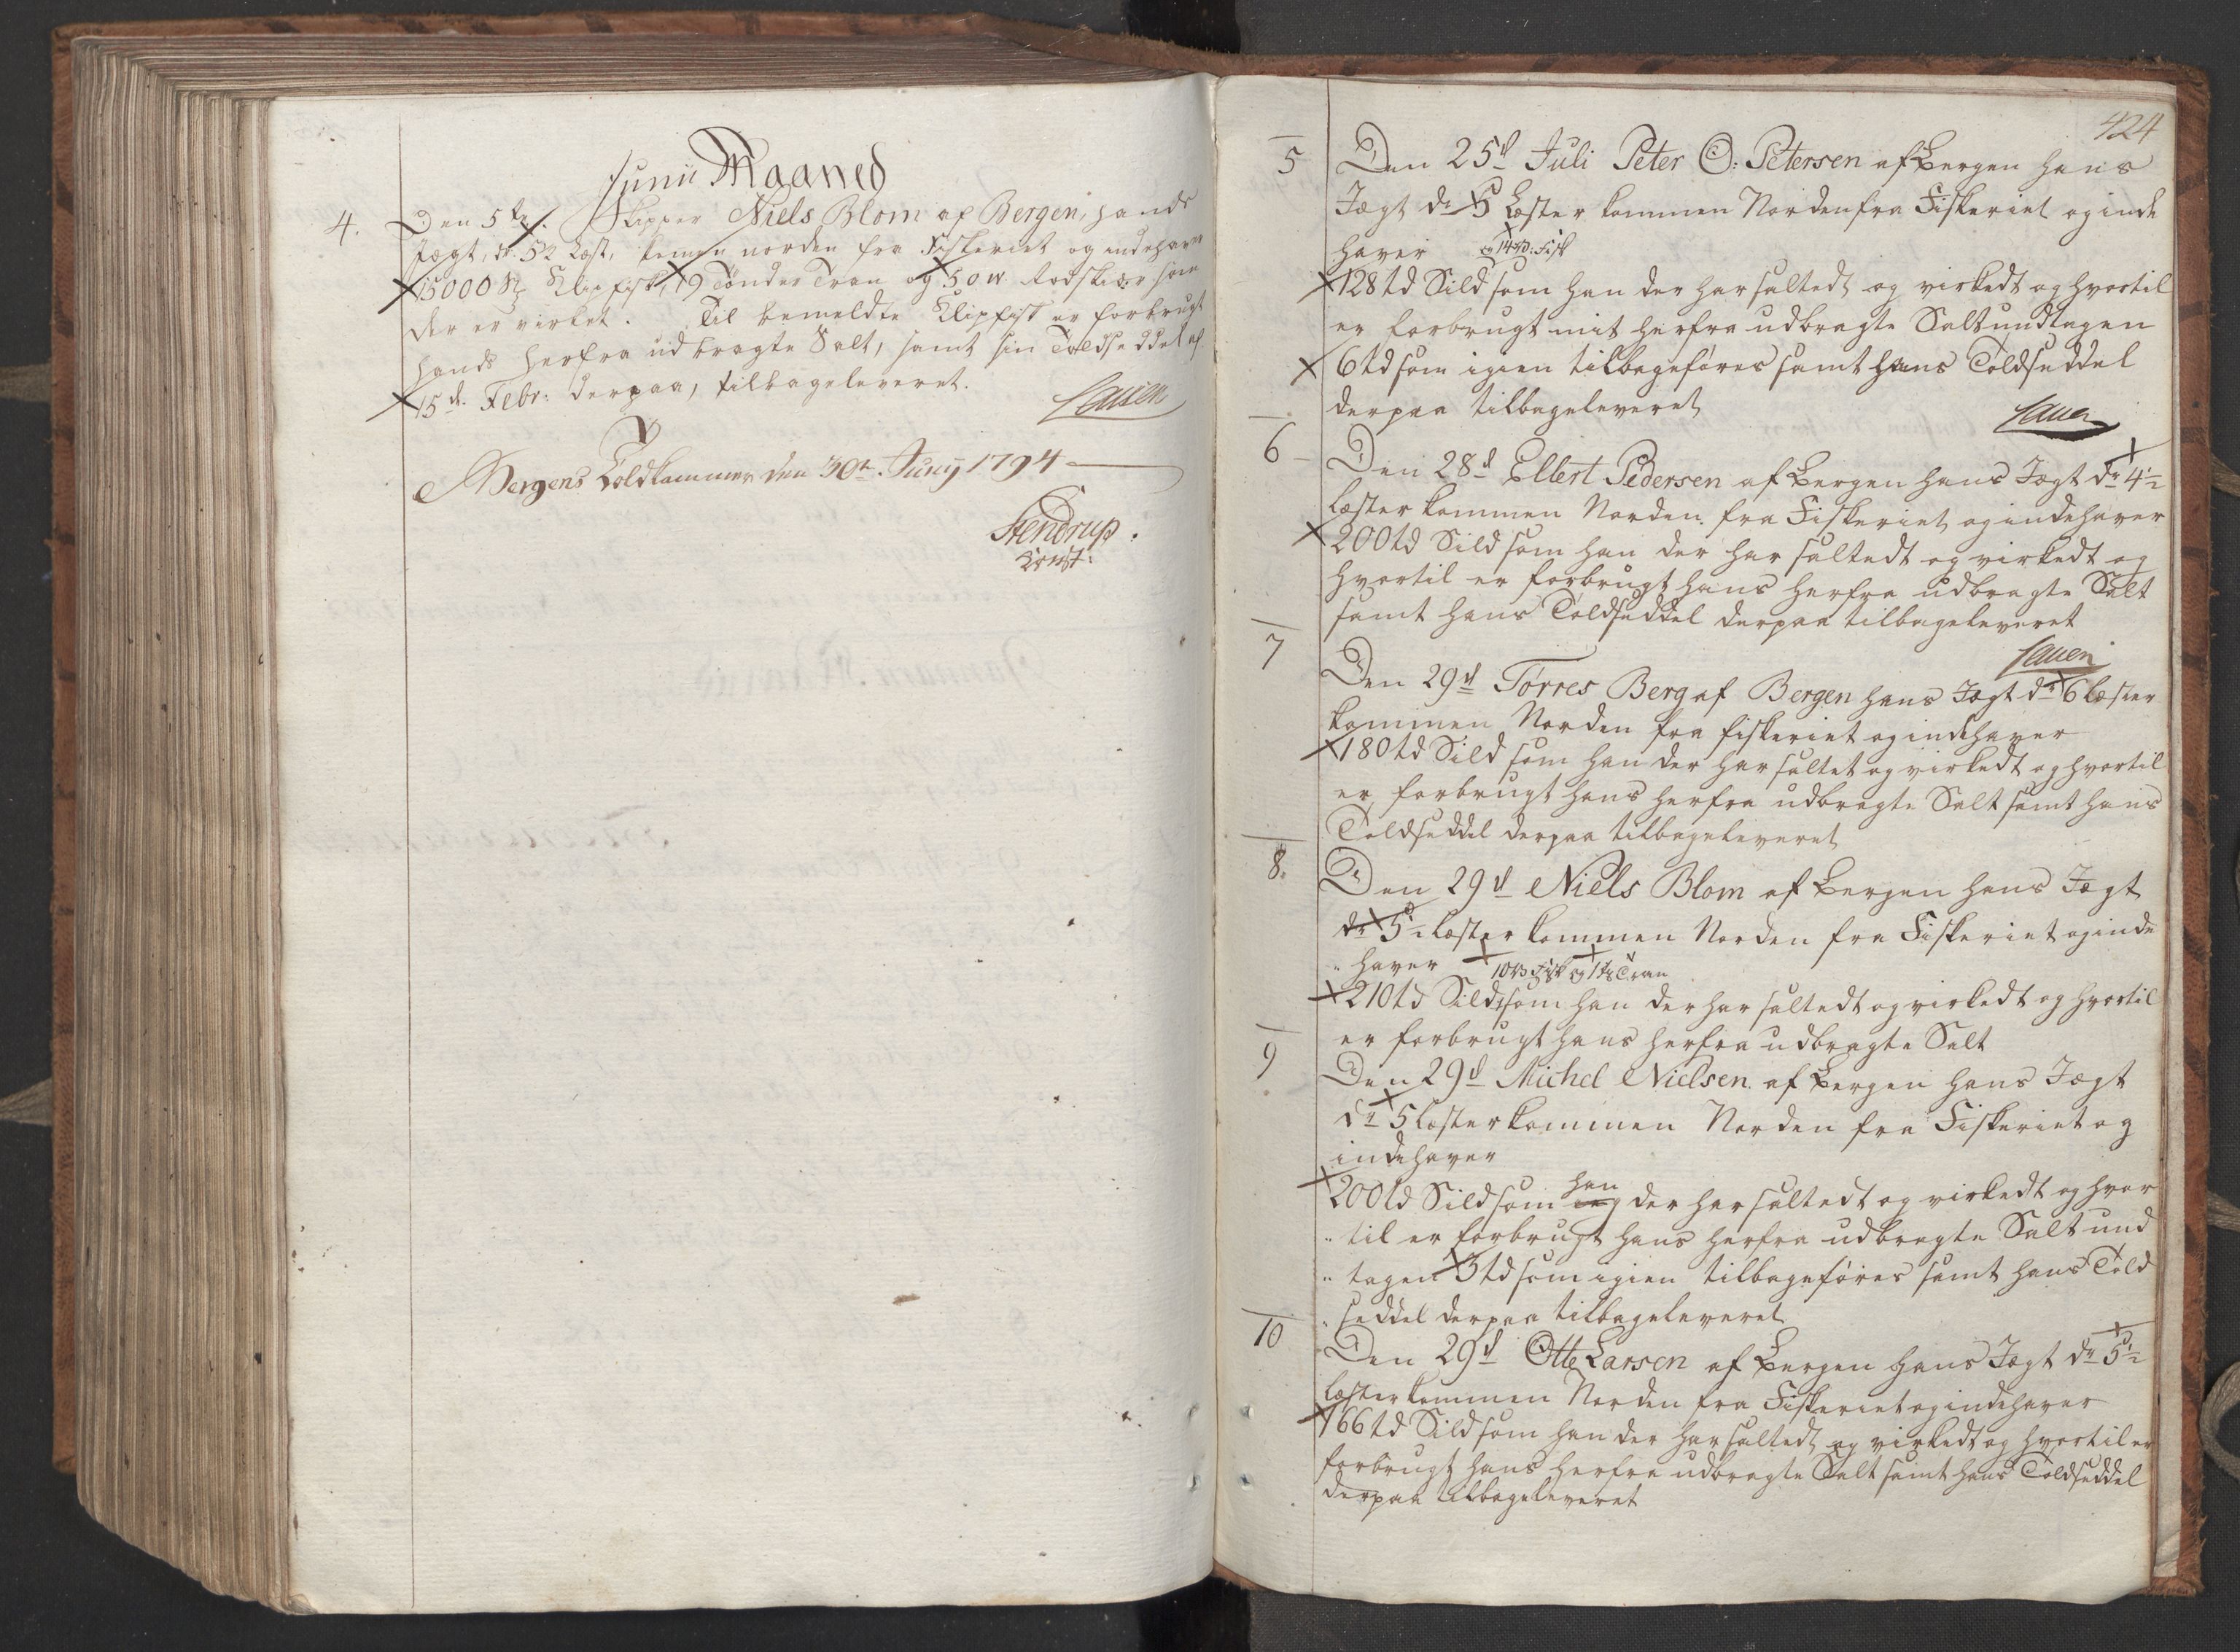 Junii Maaned
4.
Den 5te Skipper Niels Blom af Bergen, hands
Jægt, dr. 5½ Læst, kommen norden fra Fiskeriet og indehaver
15000 Klipfisk, 9 Tønder Tran og Rodskiær som
der er virket. Til bemeldte Klipfisk er forbrugt
hands herfra udbragte Salt, samt sin Toldseddel af
15de Febr: derpaa, tilbageleveret.
Bergens Toldkammer den 30te Junÿ 1794
Stendrup.
Const:
424
5
Den 25d Juli Peter O: Petersen af Bergen hans
Jægt dr 5 Læster kommen Norden fra Fiskeriet og inde
haver
128 td Sild som han der har saltedt og virkedt og hvortil
er forbrugt mit herfra udbragte Salt undtagen
6 td som igien tilbageføres samt hans Toldseddel
derpaa tilbageleveret
6
Den 28d Ellert Pedersen af Bergen hans Jægt dr 4½
læster kommen Norden fra Fiskeriet og indehaver
200 td Sild som han der har saltedt og virkedt og
hvortil er forbrugt hans herfra udbragte Salt
samt hans Toldseddel derpaa tilbageleveret
7
Den 29d Torres Berg af Bergen hans Jægt dr 6 læster
kommen Norden fra fiskeriet og indehaver
180 td Sild som han der har saltet og virkedt og hvortil
er forbrugt hans herfra udbragte Salt samt hans
Toldseddel derpaa tilbageleveret
8.
Den 29d Niels Blom af Bergen hans Jægt
dr 5½ læster kommen Norden fra Fiskeriet og inde
haver Fisk og Tran
210 td Sild som han der har saltedt og virkedt og hvortil
er forbrugt hans herfra udbragte Salt
9
Den 29d Michel Nielsen af Bergen hans Jægt
dr 5 læster kommen Norden fra Fiskeriet og
indehaver
200 td Sild som han der har saltedt og virkedt og hvor
til er forbrugt hans herfra udbragte Salt und
tagen 3 td som igien tilbageføres samt hans Told
seddel derpaa tilbageleveret
10
Den 29d Otte Larsen af Bergen hans Jægt dr 5½
læster kommen Norden fra Fiskeriet og indehaver
166 td Sild som han der har saltedt og virkedt og hvortil er
forbrugt hans herfra udbragte Salt samt hans Toldseddel
derpaa tilbageleveret